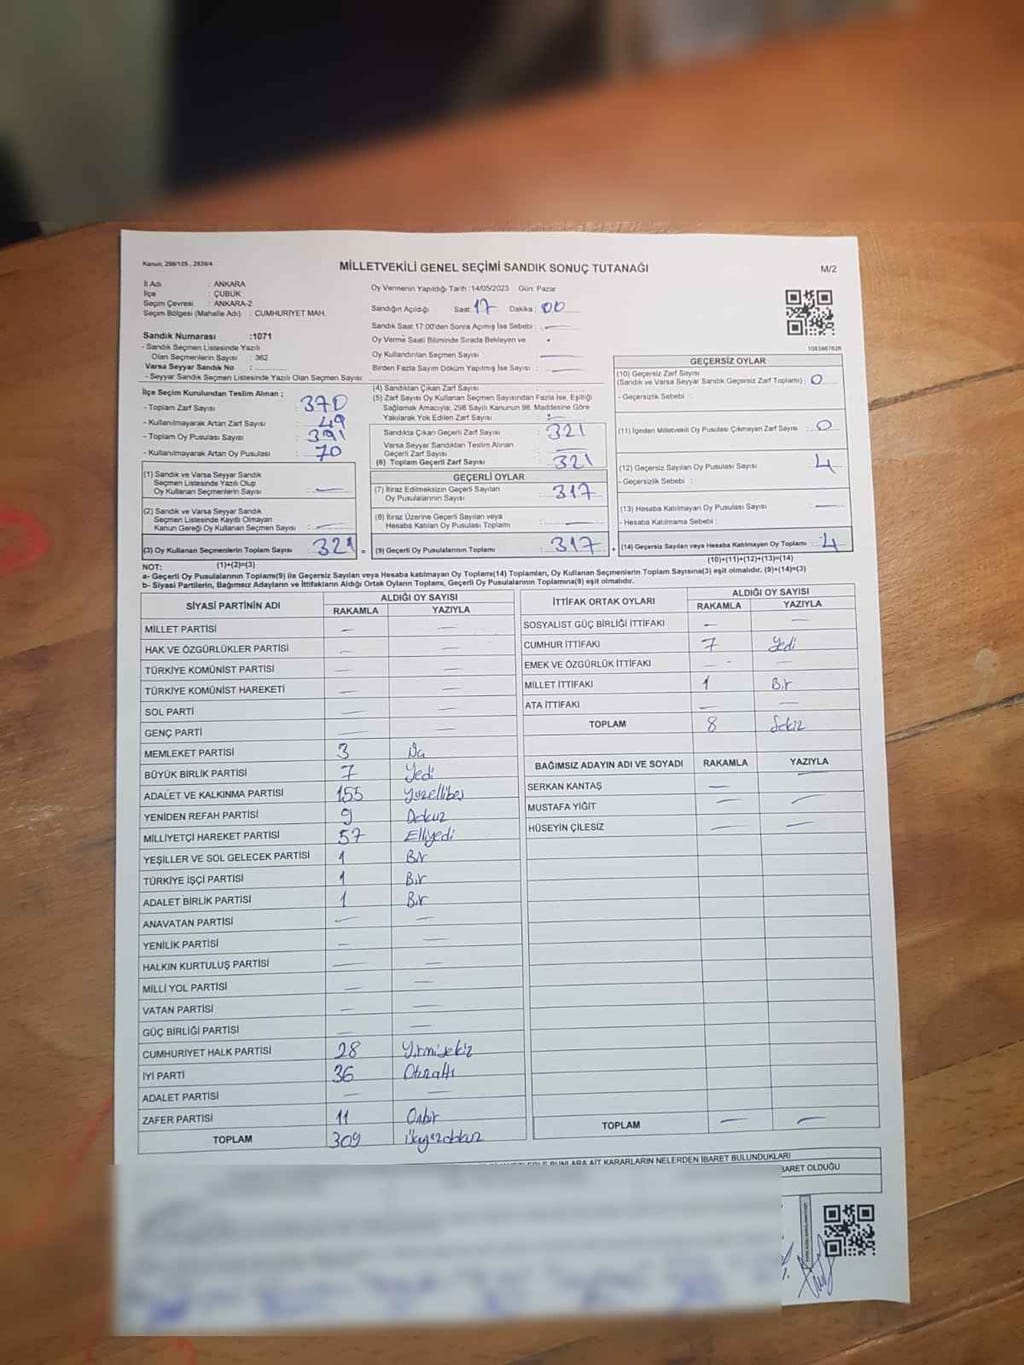 Kanun: 298/105 , 2839/4
MİLLETVEKİLİ GENEL SEÇİMİ SANDIK SONUÇ TUTANAĞI
M/2
İl Adı : ANKARA
İlçe : ÇUBUK
Seçim Çevresi : ANKARA-2
Seçim Bölgesi (Mahalle Adı) : CUMHURİYET MAH.
Sandık Numarası :1071
- Sandık Seçmen Listesinde Yazılı
Olan Seçmenlerin Sayısı : 362
Varsa Seyyar Sandık No :
- Seyyar Sandık Seçmen Listesinde Yazılı Olan Seçmen Sayısı
Oy Vermenin Yapıldığı Tarih :14/05/2023 Gün: Pazar
Sandığın Açıldığı Saat: 17 Dakika: 00
Sandık Saat 17:00'den Sonra Açılmış İse Sebebi : —
Oy Verme Saati Bitiminde Sırada Bekleyen ve
Oy Kullandırılan Seçmen Sayısı —
Birden Fazla Sayım Döküm Yapılmış İse Sayısı : —
1083667626
İlçe Seçim Kurulundan Teslim Alınan ;
- Toplam Zarf Sayısı : 370
- Kullanılmayarak Artan Zarf Sayısı : 49
- Toplam Oy Pusulası Sayısı : 391
- Kullanılmayarak Artan Oy Pusulası : 70
(1) Sandık ve Varsa Seyyar Sandık
Seçmen Listesinde Yazılı Olup
Oy Kullanan Seçmenlerin Sayısı : —
(2) Sandık ve Varsa Seyyar Sandık
Seçmen Listesinde Kaydı Olmayan
Kanun Gereği Oy Kullanan Seçmen Sayısı : —
(3) Oy Kullanan Seçmenlerin Toplam Sayısı 321
(4) Sandıktan Çıkan Zarf Sayısı : —
(5) Zarf Sayısı Oy Kullanan Seçmen Sayısından Fazla İse, Eşitliği
Sağlamak Amacıyla; 298 Sayılı Kanunun 98. Maddesine Göre
Yakılarak Yok Edilen Zarf Sayısı : —
Sandıkta Çıkan Geçerli Zarf Sayısı : 321
Varsa Seyyar Sandıktan Teslim Alınan
Geçerli Zarf Sayısı : —
(6) Toplam Geçerli Zarf Sayısı : 321
GEÇERLİ OYLAR
(7) İtiraz Edilmeksizin Geçerli Sayılan
Oy Pusulalarının Sayısı : 317
(8) İtiraz Üzerine Geçerli Sayılan veya
Hesaba Katılan Oy Pusulası Toplamı : —
(9) Geçerli Oy Pusulalarının Toplamı : 317
GEÇERSİZ OYLAR
(10) Geçersiz Zarf Sayısı
(Sandık ve Varsa Seyyar Sandık Geçersiz Zarf Toplamı) : 0
- Geçersizlik Sebebi :
(11) İçinden Milletvekili Oy Pusulası Çıkmayan Zarf Sayısı : 0
(12) Geçersiz Sayılan Oy Pusulası Sayısı : 4
- Geçersizlik Sebebi :
(13) Hesaba Katılmayan Oy Pusulası Sayısı : —
- Hesaba Katılmama Sebebi :
(14) Geçersiz Sayılan veya Hesaba Katılmayan Oy Toplamı : 4
NOT: (1)+(2)=(3)
(10)+(11)+(12)+(13)=(14)
a- Geçerli Oy Pusulalarının Toplamı(9) ile Geçersiz Sayılan veya Hesaba katılmayan Oy Toplamı(14) Toplamları, Oy Kullanan Seçmenlerin Toplam Sayısına(3) eşit olmalıdır. (9)+(14)=(3)
b- Siyasi Partilerin, Bağımsız Adayların ve İttifakların Aldığı Ortak Oyların Toplamı, Geçerli Oy Pusulalarının Toplamına(9) eşit olmalıdır.
SİYASİ PARTİNİN ADI ALDIĞI OY SAYISI
RAKAMLA YAZIYLA
MİLLET PARTİSİ — —
HAK VE ÖZGÜRLÜKLER PARTİSİ — —
TÜRKİYE KOMÜNİST PARTİSİ — —
TÜRKİYE KOMÜNİST HAREKETİ — —
SOL PARTİ — —
GENÇ PARTİ — —
MEMLEKET PARTİSİ 3
BÜYÜK BİRLİK PARTİSİ 7 Yedi
ADALET VE KALKINMA PARTİSİ 155 Yüzellibeş
YENİDEN REFAH PARTİSİ 9 Dokuz
MİLLİYETÇİ HAREKET PARTİSİ 57 Elliyedi
YEŞİLLER VE SOL GELECEK PARTİSİ 1 Bir
TÜRKİYE İŞÇİ PARTİSİ 1 Bir
ADALET BİRLİK PARTİSİ 1 Bir
ANAVATAN PARTİSİ — —
YENİLİK PARTİSİ — —
HALKIN KURTULUŞ PARTİSİ — —
MİLLİ YOL PARTİSİ — —
VATAN PARTİSİ — —
GÜÇ BİRLİĞİ PARTİSİ — —
CUMHURİYET HALK PARTİSİ 28 Yirmisekiz
İYİ PARTİ 36 Otuzaltı
ADALET PARTİSİ — —
ZAFER PARTİSİ 11 Onbir
TOPLAM 309
İTTİFAK ORTAK OYLARI ALDIĞI OY SAYISI
RAKAMLA YAZIYLA
SOSYALİST GÜÇ BİRLİĞİ İTTİFAKI — —
CUMHUR İTTİFAKI 7 Yedi
EMEK VE ÖZGÜRLÜK İTTİFAKI — —
MİLLET İTTİFAKI 1 Bir
ATA İTTİFAKI — —
TOPLAM 8 Sekiz
BAĞIMSIZ ADAYIN ADI VE SOYADI RAKAMLA YAZIYLA
SERKAN KANTAŞ — —
MUSTAFA YİĞİT — —
HÜSEYİN ÇİLESİZ — —
TOPLAM — —
BUNLARA AİT KARARLARIN NELERDEN İBARET BULUNDUKLARI
İBARET OLDUĞU